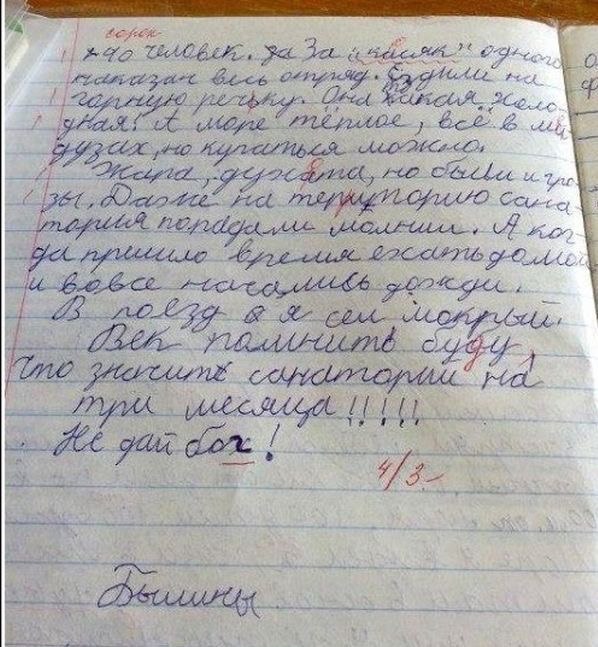 сорок
≈40 человек. За За "касяк" одного
наказан весь отряд. Ездили на
горную речьку. Она такая холо-
дная! А море тёплое, всё в ме
дузах, но купаться можно.
Жара, духата, но были и гро-
зы. Даже на территорию сана-
тория попадали молнии. А ког-
да пришло время ехать домой
и вовсе начались дожди.
В поезд я сел мокрый.
Век помнить буду,
что значить санаторий на
три месяца!!!!!
Не дай бох!
4/3-
Былины